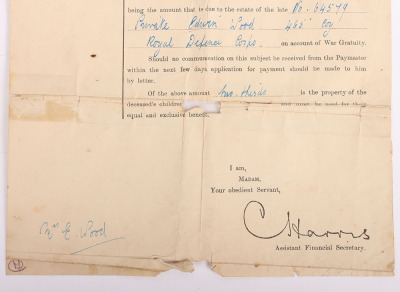 being the amount that is due to the estate of the late No. 64579
Private Edwin Wood 465 Coy
Royal Defence Corps. on account of War Gratuity.
Should no communication on this subject be received from the Paymaster
within the next few days application for payment should be made to him
by letter.
Of the above amount two-thirds is the property of the
deceased's children and must be used for their
equal and exclusive benefit.
I am,
MADAM,
Your obedient Servant,
C Harris
Assistant Financial Secretary.
Mrs E. Wood